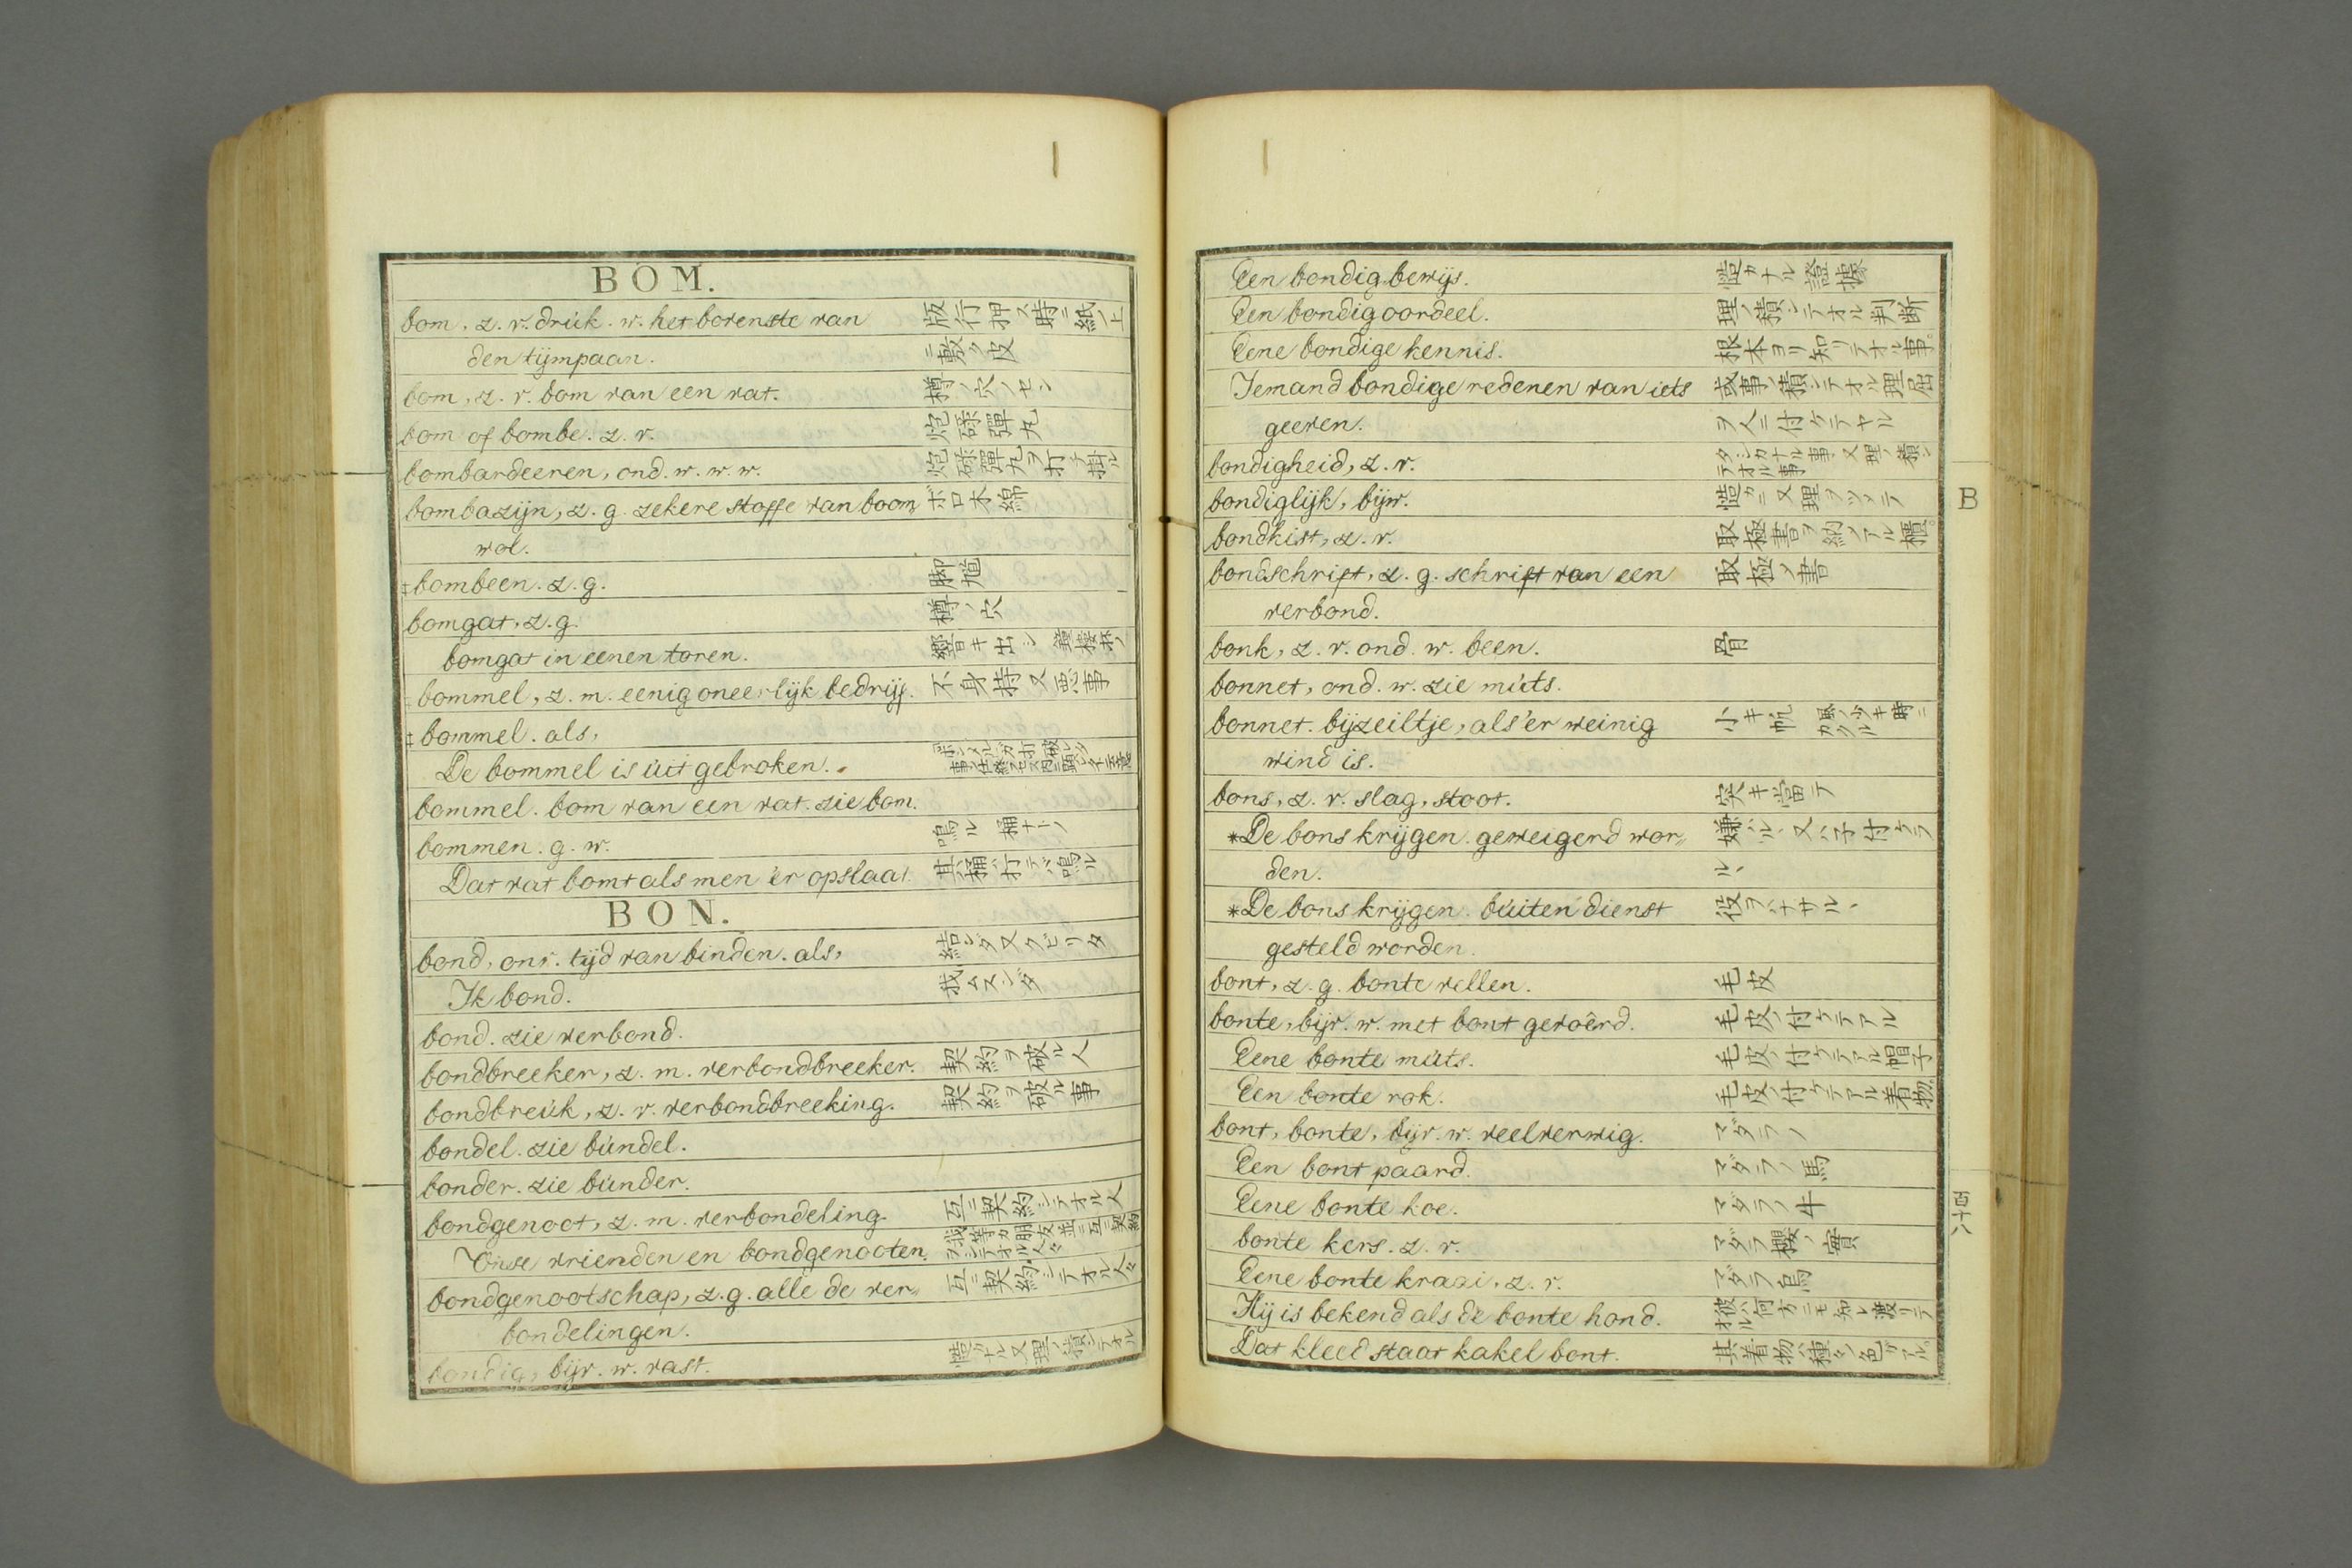 BOM.
bom, z. v. drúk. w. het bovenste van 版行押ス時ニ紙ノ上
den tijmpaan. ニ敷ク皮
bom, z. v. bom van een vat. 樽ノ穴ノセン
bom of bombe. z. v. 炮碌彈丸
bombardeeren, ond. w. w. w. 炮碌彈丸ヲ打チ掛ル
bombazijn, z. g. zekere stoffe van boom„ ボロ木綿
wol.
‡bombeen. z. g. 脚
bomgat, z. g. 樽ノ穴
bomgat in eenen toren. 響キ出シ
bommel, z. m. eenig oneerlijk bedrijf. 不身持又悪事
‡bommel. als,
De bommel is úit gebroken.
bommel. bom van een vat. zie bom.
bommen. g. w. 鳴ル 桶ナトノ
Dat vat bomt als men 'er op slaat. 其桶ハ打テバ鳴ル
BON.
bond, onv. tijd van binden. als, 結ンダ又クビリタ
Ik bond. 我ムスンダ
bond. zie verbond.
bondbreeker, z. m. verbondbreeker. 契約ヲ破ル人
bondbreúk, z. v. verbondbreeking. 契約ヲ破ル事
bondel. zie búndel.
bonder. zie búnder.
bondgenoot, z. m. verbondeling. 互ニ契約シテオル人
Onze vrienden en bondgenooten. 我等カ朋友並ニ互ニ契約ヲシテオル人々
bondgenootschap, z. g. alle de ver„ 互ニ契約シテオル人々
bondelingen.
bondig, bijv. w. vast. 慥カナル又理ノ積シテオル
Een bondig bewijs. 慥カナル證據
Een bondig oordeel. 理ノ積シテオル判断
Eene bondige kennis. 根本ヨリ知リテオル事。
Iemand bondige redenen van iets 或事ノ積シテオル理屈
geeven. ヲ人ニ付ケテヤル
bondigheid, z. v. タシカナル事又理ノ積シテオル事
bondiglijk, bijw. 慥カニ又理ヲツメテ
bondkist, z. v. 取極書ヲ納メアル櫃。
bondschrift, z. g. schrift van een 取極ノ書
verbond.
bonk, z. v. ond. w. been. 骨
bonnet, ond. w. zie múts.
bonnet. bijzeiltje, als 'er weinig 小キ帆 風ノ少キ時ニカクル
wind is.
bons, z. v. slag, stoot. 突キ當テ
*De bons krijgen. geweigerd wor„
den. ル丶
*De bons krijgen. búiten dienst 役ヲハナサル丶
gesteld worden.
bont, z. g. bonte vellen. 毛皮
bonte, bijv. w. met bont gevoêrd. 毛皮ノ付ケテアル
Eene bonte múts. 毛皮ノ付ケテアル帽子
Een bonte rok. 毛皮ノ付ケテアル着物。
bont, bonte, bijv. w. veelverwig. マダラノ
Een bont paard. マダラノ馬
Eene bonte koe. マダラノ牛
bonte kers. z. v. マダラ櫻ノ實
Eene bonte kraai, z. v. マダラ烏
Hij is bekend als de bonte hond. 彼ハ何方ニモ知レ渡リテオル
Dat kleed staat kakel bont. 其着物ハ種々ノ色ガアル。
B
百十八